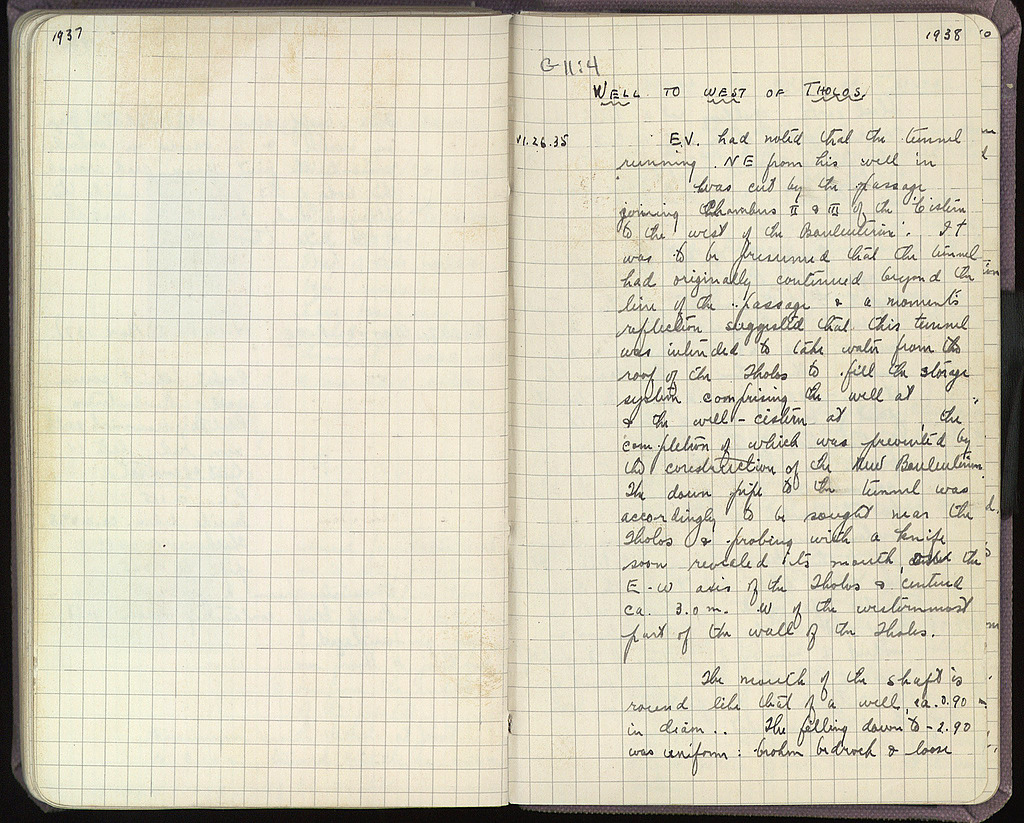 1937
1938
G 11:4
WELL TO WEST OF THOLOS
VI.26.35
E.V. had noted that the tunnel
running NE from his well in
was cut by the passage
joining Chambers II & III of the "Cistern
to the west of the Bouleuterion". It
was to be presumed that the tunnel
had originally continued beyond the
line of the passage & a moment's
reflection suggested that this tunnel
was intended to take water from the
roof of the Tholos to fill the storage
system comprising the well at
& the well-cistern at , the
completion of which was prevented by
the construction of the New Bouleuterion.
The down pipe to the tunnel was
accordingly to be sought near the
Tholos & probing with a knife
soon revealed its mouth the
E-W axis of the Tholos & centered
ca. 3.0 m. W of the westernmost
part of the wall of the Tholos.
The mouth of the shaft is
round like that of a well, ca. 0.90
in diam.. The filling down to -2.90
was uniform: broken bedrock & loose